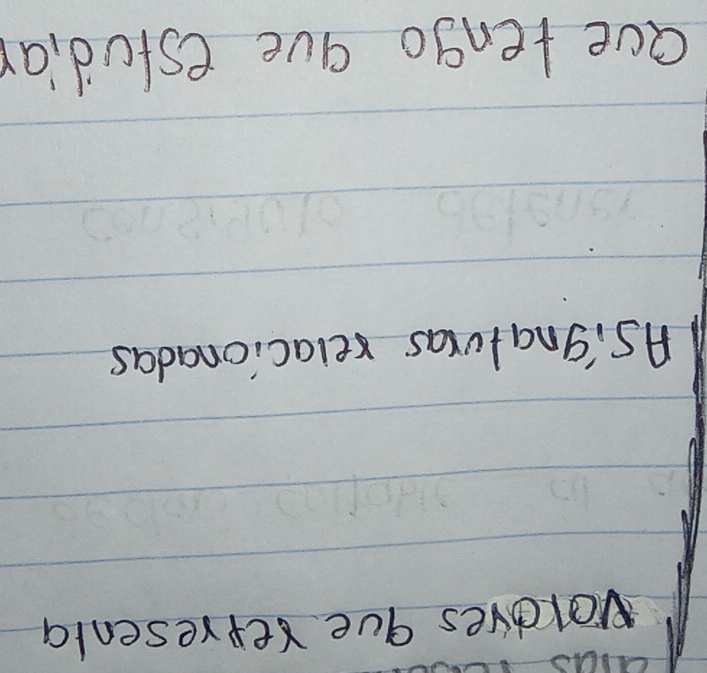 Valores que representa
Asignaturas relacionadas
Que tengo que estudiar